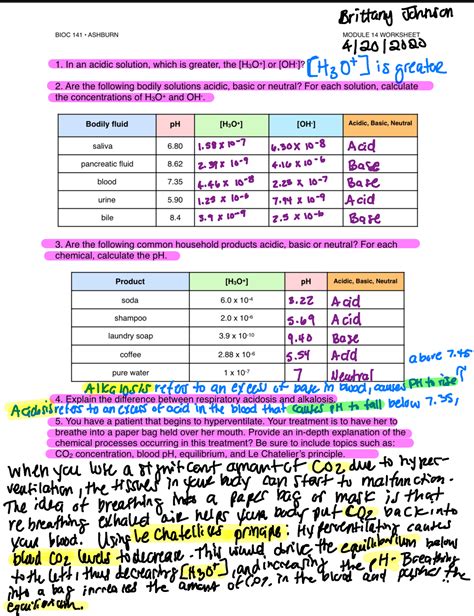 Brittany Johnson
BIOC 141 • ASHBURN
MODULE 14 WORKSHEET
4/20/2020
1. In an acidic solution, which is greater, the [H₃O⁺] or [OH⁻]? [H₃O⁺] is greater
2. Are the following bodily solutions acidic, basic or neutral? For each solution, calculate
the concentrations of H₃O⁺ and OH⁻.
Bodily fluid pH [H₃O⁺] [OH⁻] Acidic, Basic, Neutral
saliva 6.80 1.58 x 10⁻⁷ 6.30 x 10⁻⁸ Acid
pancreatic fluid 8.62 2.39 x 10⁻⁹ 4.16 x 10⁻⁶ Base
blood 7.35 4.46 x 10⁻⁸ 2.25 x 10⁻⁷ Base
urine 5.90 1.25 x 10⁻⁶ 7.94 x 10⁻⁹ Acid
bile 8.4 3.9 x 10⁻⁹ 2.5 x 10⁻⁶ Base
3. Are the following common household products acidic, basic or neutral? For each
chemical, calculate the pH.
Product [H₃O⁺] pH Acidic, Basic, Neutral
soda 6.0 x 10⁻⁴ 3.22 Acid
shampoo 2.0 x 10⁻⁶ 5.69 Acid
laundry soap 3.9 x 10⁻¹⁰ 9.40 Base
coffee 2.88 x 10⁻⁶ 5.54 Acid
pure water 1 x 10⁻⁷ 7 Neutral
above 7.45
Alkalosis refers to an excess of base in blood, causes pH to rise
4. Explain the difference between respiratory acidosis and alkalosis.
Acidosis refers to an excess of acid in the blood that causes pH to fall below 7.35,
5. You have a patient that begins to hyperventilate. Your treatment is to have her to
breathe into a paper bag held over her mouth. Provide an in-depth explanation of the
chemical processes occurring in this treatment? Be sure to include topics such as:
CO₂ concentration, blood pH, equilibrium, and Le Chatelier's principle.
when you lose a significant amount of CO₂ due to hyper-
ventilation, the tissues in your body can start to malfunction.
The idea of breathing into a paper bag or mask is that
re breathing exhaled air helps your body put CO₂ back into
your blood. Using le Chateliers principle: Hyperventilating causes
blood CO₂ levels to decrease. This would drive the equilibrium below
to the left, thus decreasing [H₃O⁺], and increasing the pH- Breathing
into a bag increases the amount of CO₂ in the blood and pushes the
equilibrium.